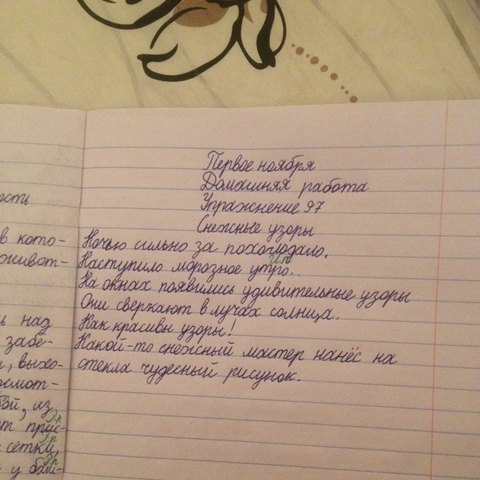 Первое ноября
Домашняя работа
Упражнение 97
Снежные узоры
Ночью сильно за похолодало.
Наступило морозное утро.
На окнах появились удивительные узоры
Они сверкают в лучах солнца.
Как красивы узоры!
Какой-то снежный мастер нанёс на
стекла чудесный рисунок.
ости
в кото-
живот-
ь над
забе-
, выхо-
осмот-
ой, из
от прус-
сетки,
у бай-